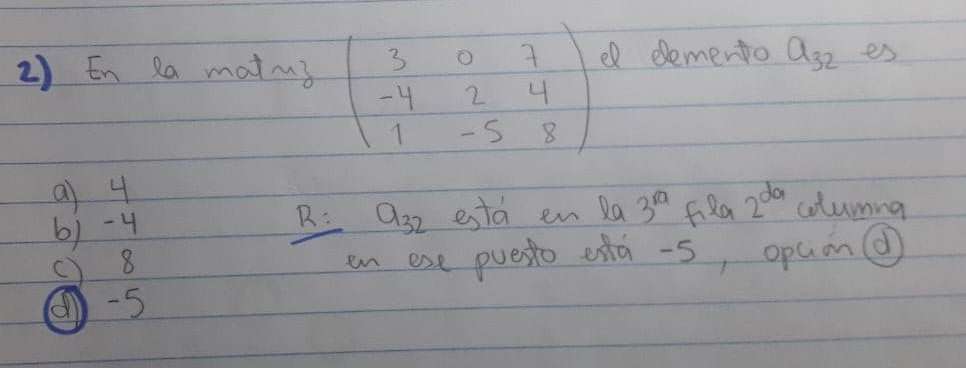 2) En la matriz ( 3 0 7 ) el elemento a32 es
-4 2 4
1 -5 8
a) 4
b) -4
c) 8
d) -5
R: a32 está en la 3ra fila 2da columna
en ese puesto está -5, opción d